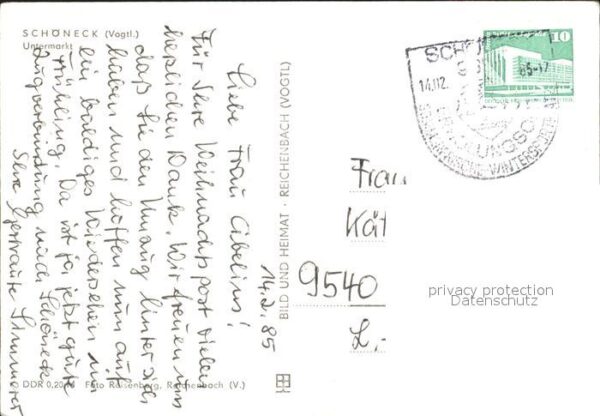 SCHÖNECK (Vogtl.)
Untermarkt
14.2.85
Liebe Frau Sibelius!
Für Ihre Weihnachtspost vielen
herzlichen Dank. Wir freuen uns
daß Sie den Umzug hinter sich
haben und hoffen nun auf
ein baldiges Wiedersehen im
Frühling. Da ist ja jetzt gute
Zugverbindung nach Schöneck
Ihre Gertraute
DDR 0,20 M Foto Reisenberg, Reichenbach (V.)
BILD UND HEIMAT · REICHENBACH (VOGTL)
10
SCH
14.02.
85-17
Frau
Kät
9540
L,
privacy protection
Datenschutz